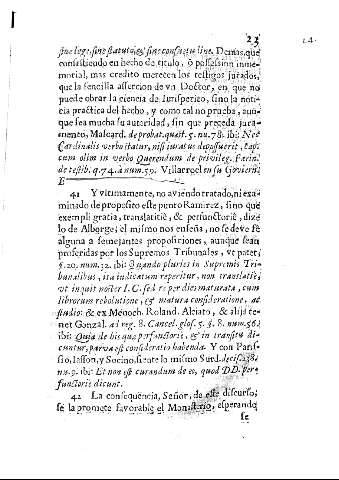 23
24
sine lege, sine statuto, & sine consuetudine. Demas, que
consistiendo en hecho de titulo, ò possession inme-
morial, mas credito merecen los testigos jurados,
que la sencilla assercion de vn Doctor, en que no
puede obrar la ciencia de Iurisperito, sino la noti-
cia practica del hecho, y como tal no prueba, aun-
que sea mucha su autoridad, sin que preceda jura-
mento, Mascard. de probat. quæst. 5. nu. 78. ibi: Nec
Cardinalis verbo statur, nisi iuratus deposuerit,
olim in verbo Querendum de privileg. Farin.
de testib. q. 74. à num. 59. Villarroel en su Goviern.
41 Y vltimamente, no aviendo tratado, ni exa-
minado de proposito este punto Ramirez, sino que
exempli gratia, translatitiè, & perfunctoriè, dize
lo de Alberge; el mismo nos enseña, no se deve fè
alguna à semejantes proposiciones, aunque sean
proferidas por los Supremos Tribunales, vt patet,
§. 20. num. 32. ibi: Quando pluries in Supremis Tribu-
nalibus, ita indicatum reperitur, non translatiè,
vt inquit noster I. C. sed re per dies maturata, cum
librorum rebolutione, & matura consideratione, ac
studio: & ex Menoch. Roland. Alciato, & alijs te-
net Gonzal. ad reg. 8. Cancel. glos. 5. §. 8. num. 56.
ibi: Quia de his quæ perfunctoriè, & in transitu di-
cuntur, parva est consideratio habenda. Y con Pari-
sio, Iasson, y Socino, siente lo mismo Surd. decis. 238.
nu. 9. ibi: Et non est curandum de eo, quod DD. per-
functoriè dicunt.
42 La consequencia, Señor, de este discurso,
se la promete favorable el Monasterio, esperando
se